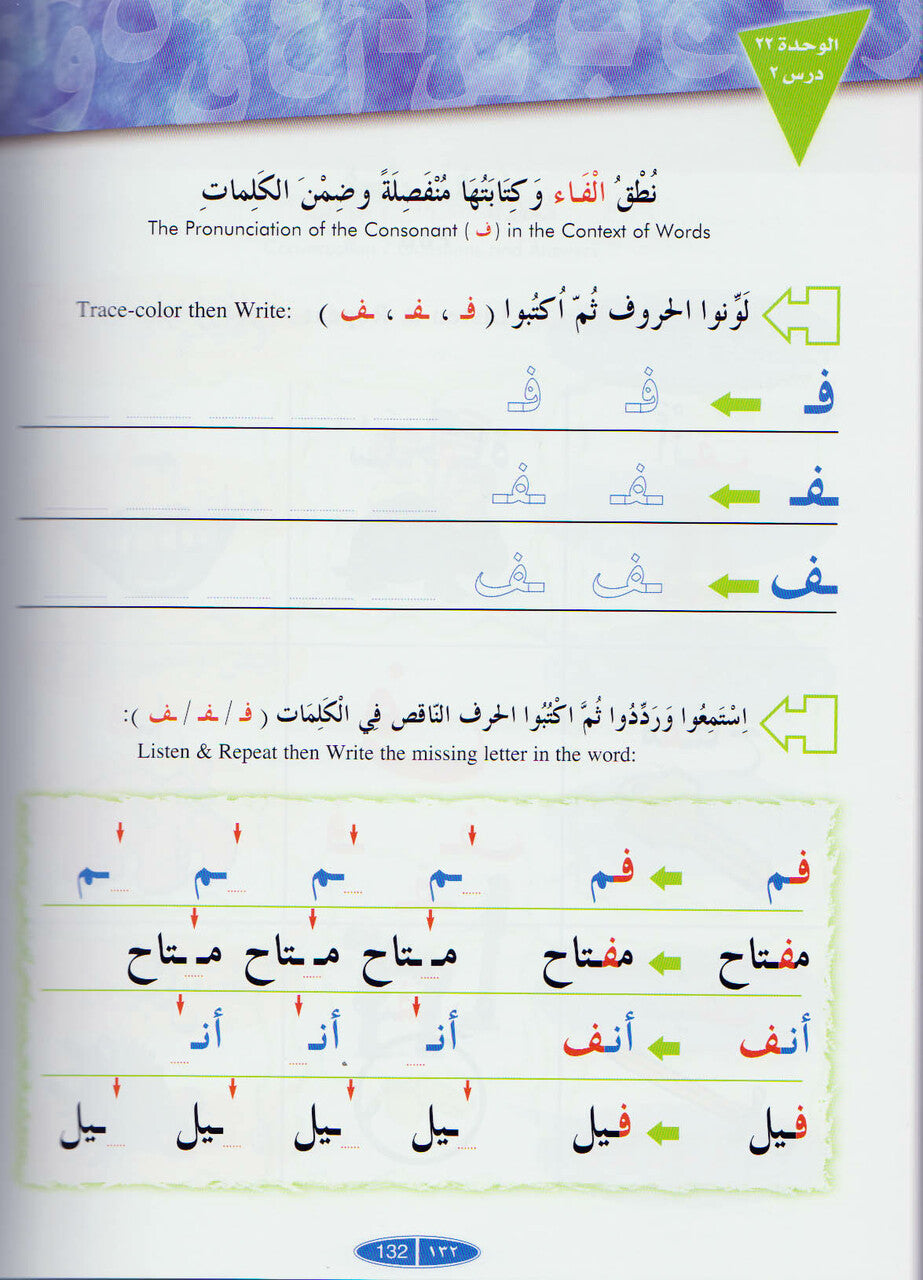 الوحدة ٢٢
درس ٢
نُطْقُ الْفَاء وَكِتَابَتُهَا مُنْفَصِلَةً وضِمْنَ الكَلِماتِ
The Pronunciation of the Consonant (ف) in the Context of Words
لَوِّنوا الحروف ثُمّ اُكتُبوا ( فـ ، ـفـ ، ـف ) Trace-color then Write:
فـ فـ فـ
ـفـ ـفـ ـفـ
ـف ـف ـف
اِسْتَمِعُوا وَرَدِّدُوا ثُمَّ اكْتُبُوا الحرف النّاقص فِي الْكَلِمَات ( فـ / ـفـ / ـف ):
Listen & Repeat then Write the missing letter in the word:
فم فم ..... ـم ..... ـم ..... ـم ..... ـم
مفتاح مفتاح مـ ..... ـتاح مـ ..... ـتاح مـ ..... ـتاح
أنف أنف أنـ ..... أنـ ..... أنـ .....
فيل فيل ..... ـيل ..... ـيل ..... ـيل ..... ـيل
132 ١٣٢